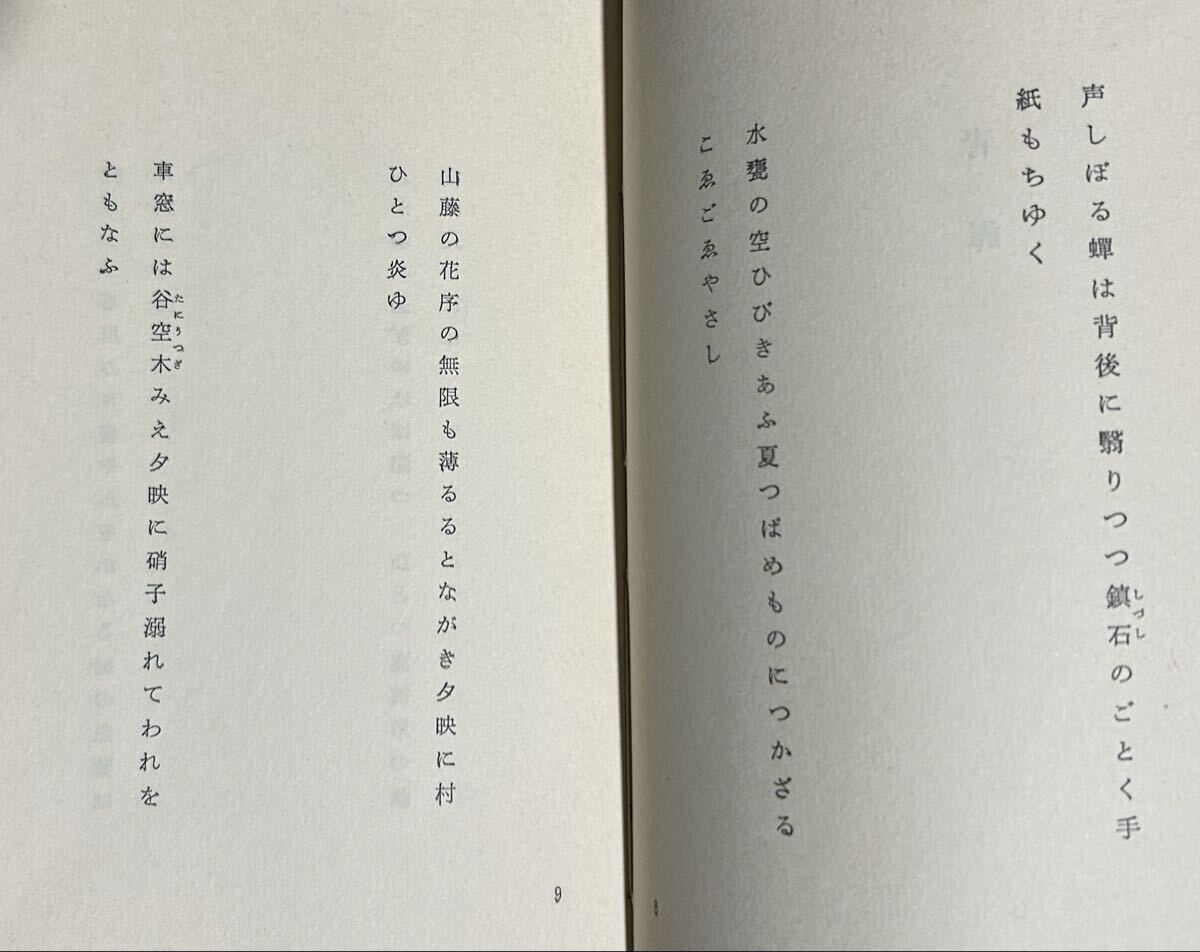 声しぼる蟬は背後に翳りつつ鎮石のごとく手
しづし
紙もちゆく
水甕の空ひびきあふ夏つばめものにつかざる
こゑごゑやさし
8
山藤の花序の無限も薄るるとながき夕映に村
ひとつ炎ゆ
車窓には谷空木みえ夕映に硝子溺れてわれを
たにうつぎ
ともなふ
9